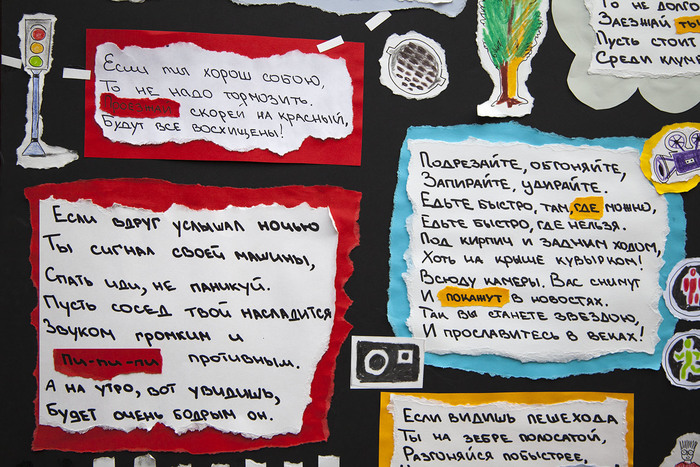 Если ты хорош собою,
То не надо тормозить.
Проезжай скорей на красный,
Будут все восхищены!
То не долго
Заезжай ты
Пусть стоит
Среди клумб
Если вдруг услышал ночью
Ты сигнал своей машины,
Спать иди, не паникуй.
Пусть сосед твой насладится
Звуком громким и
Пи-пи-пи противным.
А на утро, вот увидишь,
Будет очень бодрым он.
Подрезайте, обгоняйте,
Запирайте, удирайте.
Едьте быстро, там, где можно,
Едьте быстро, где нельзя.
Под кирпич и задним ходом,
Хоть на крыше кувырком!
Всюду камеры. Вас снимут
И покажут в новостях.
Так вы станете звездою,
И прославитесь в веках!
Если видишь пешехода
Ты на зебре полосатой,
Разгоняйся побыстрее,